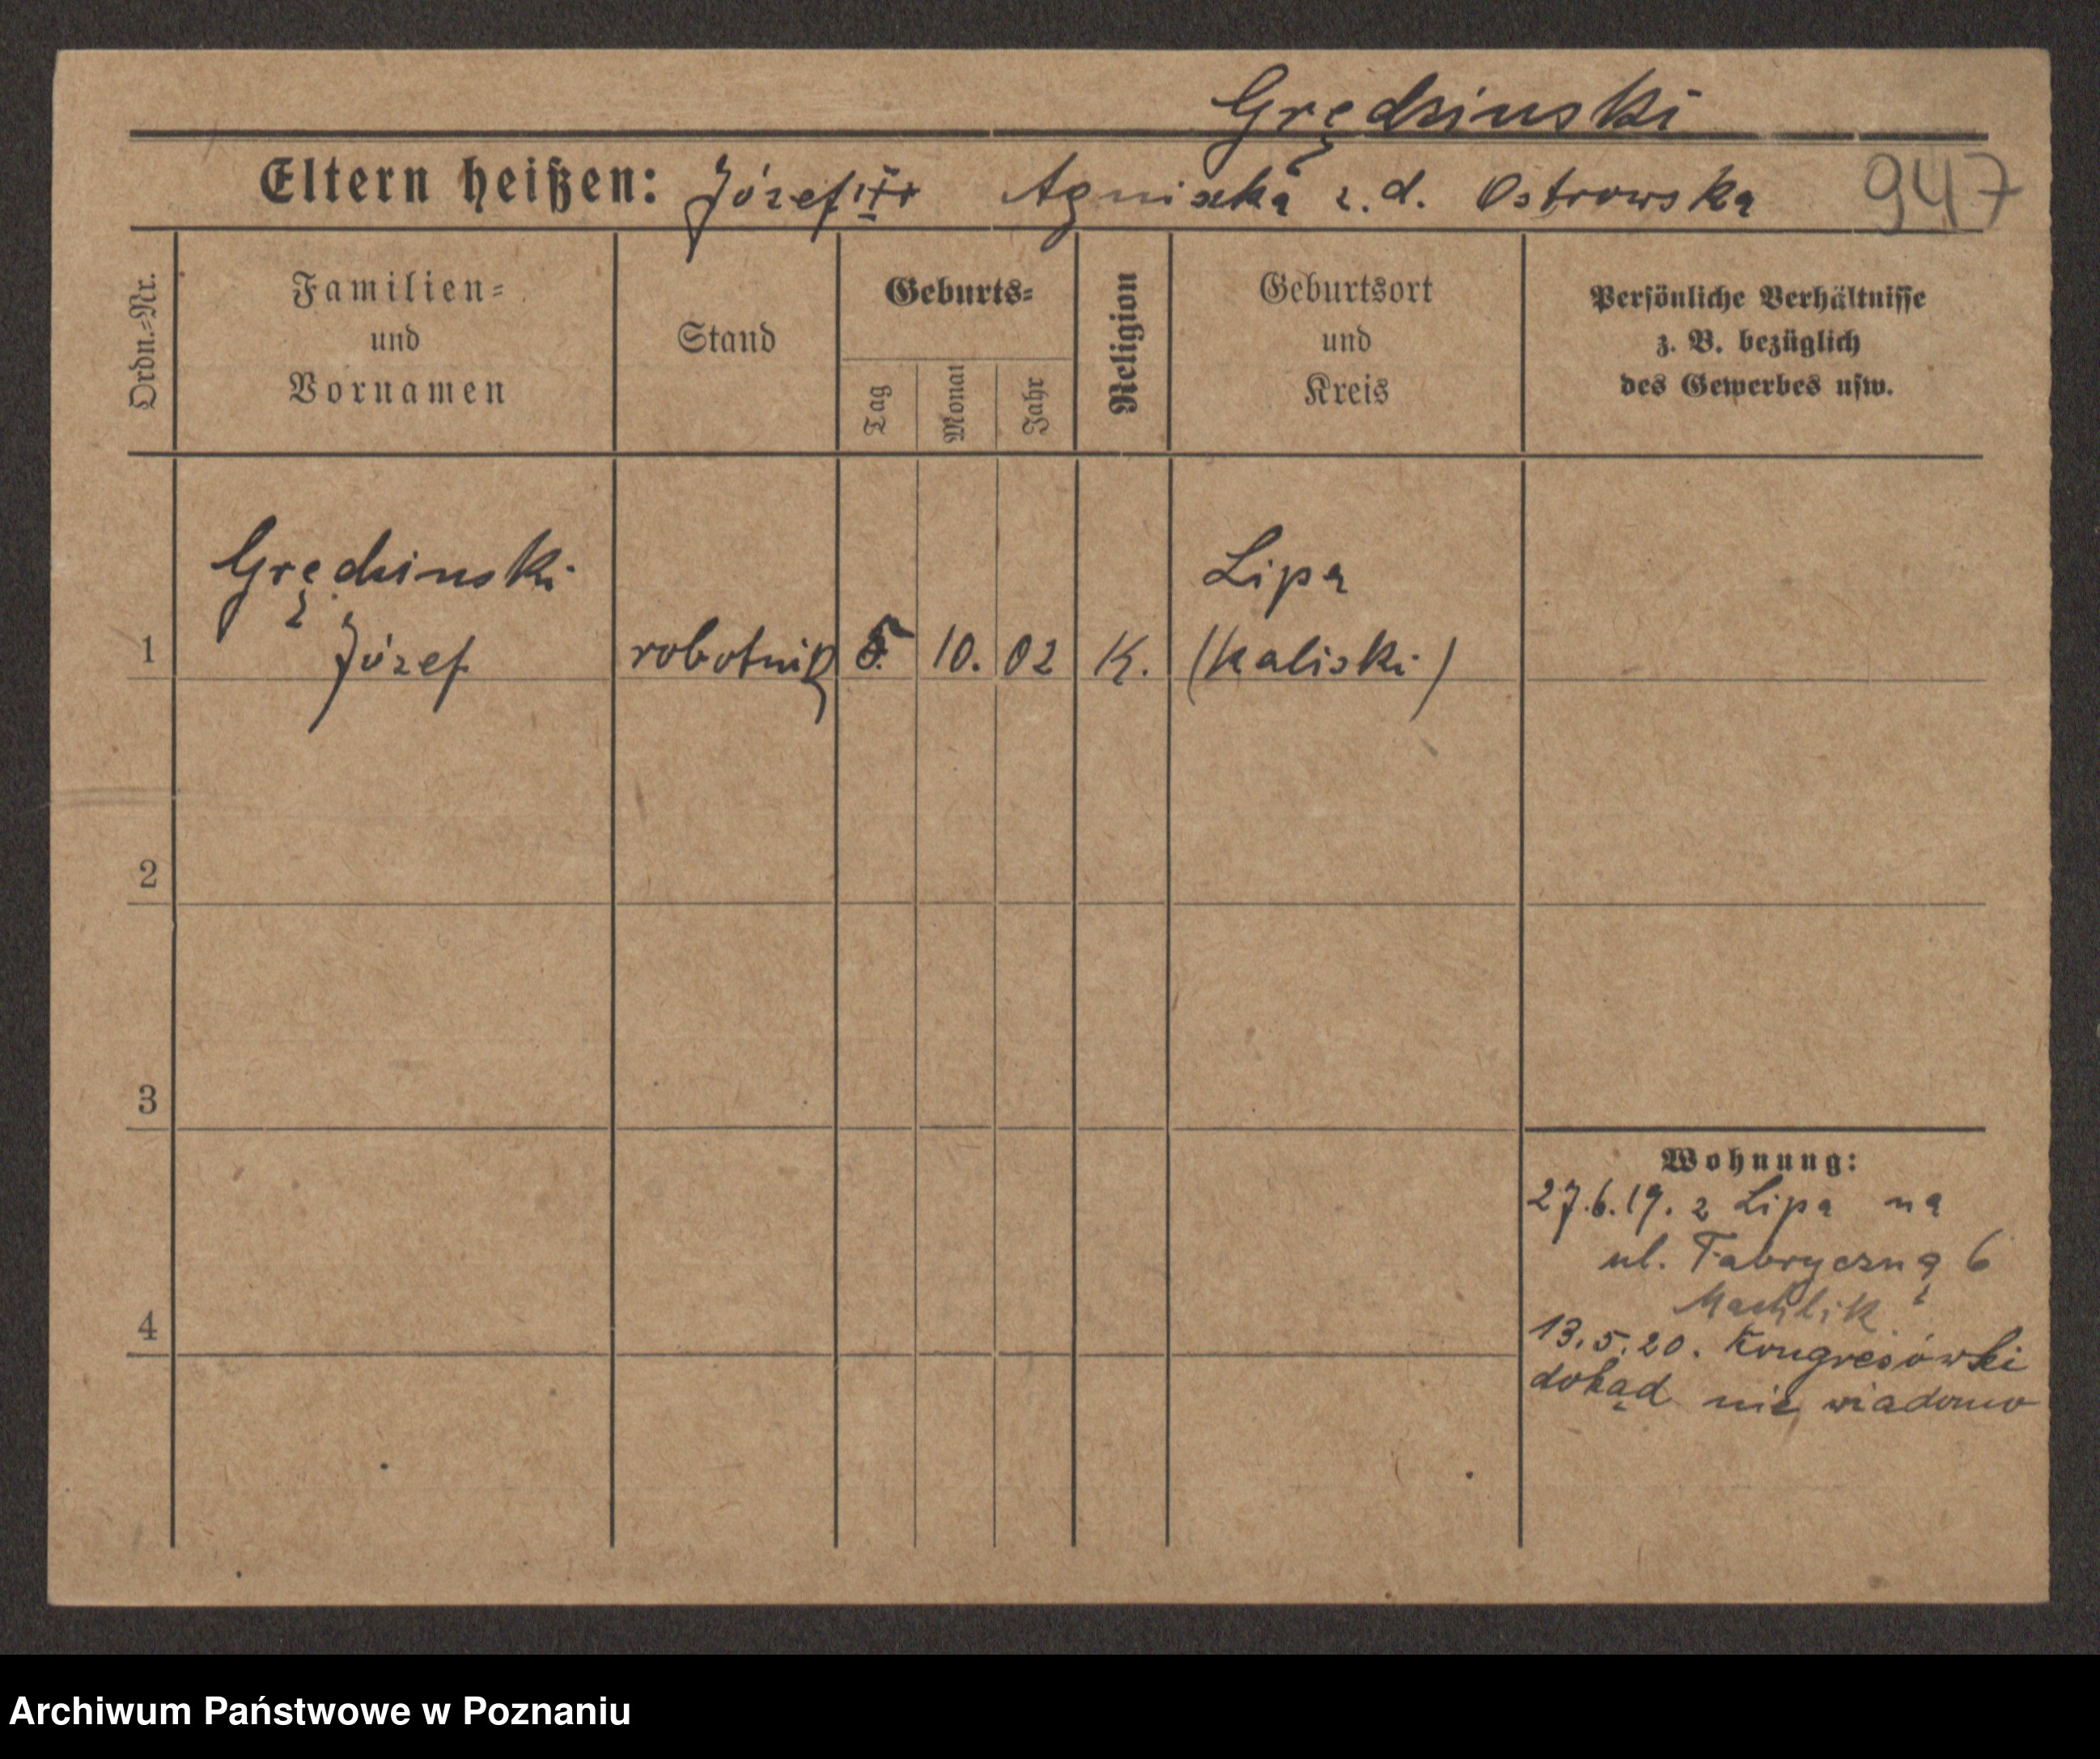 Grędzinski
Eltern heißen: Józef Agniszka z. d. Ostrowska 947
Ordn.=Nr.
Familien=
und
Vornamen
Stand
Geburts=
Tag
Monat
Jahr
Religion
Geburtsort
und
Kreis
Persönliche Verhältnisse
z. B. bezüglich
des Gewerbes usw.
Grędzinski Lipa
1 Józef robotnik 5. 10. 02 K. (Kaliski)
2
3
4
Wohnung:
27.6.19. z Lipa na
ul. Fabryczną 6
13.5.20. Kongresówki
dokąd nie wiadomo
Archiwum Państwowe w Poznaniu